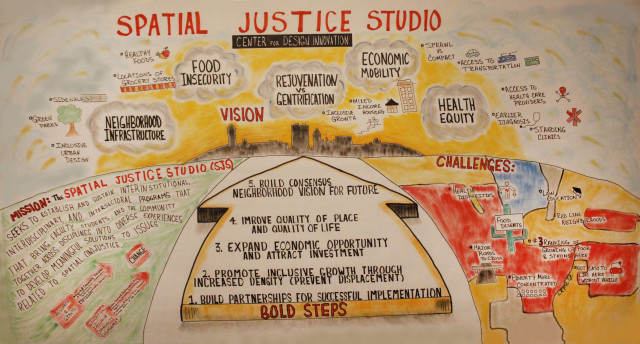 SPATIAL JUSTICE STUDIO
CENTER FOR DESIGN INNOVATION
HEALTHY
FOODS
LOCATIONS OF
GROCERY STORES
SIDEWALKS
GREEN
PARKS
INCLUSIVE
URBAN
DESIGN
FOOD
INSECURITY
NEIGHBORHOOD
INFRASTRUCTURE
REJUVENATION
VS
GENTRIFICATION
VISION
INCLUSIVE
GROWTH
MIXED
INCOME
HOUSING
ECONOMIC
MOBILITY
SPRAWL
VS
COMPACT
ACCESS TO
TRANSPORTATION
HEALTH
EQUITY
ACCESS TO
HEALTH CARE
PROVIDERS
EARLIER
DIAGNOSIS
STANDING
CLINICS
MISSION: THE SPATIAL JUSTICE STUDIO (SJS)
SEEKS TO ESTABLISH AND SUSTAIN INTERINSTITUTIONAL,
INTERDISCIPLINARY, AND INTERSECTORAL PROGRAMS THAT
THAT BRING FACULTY, STUDENTS, AND THE COMMUNITY
TOGETHER ACROSS DISCIPLINES AND DIVERSE EXPERIENCES
TO DEVELOP SOLUTIONS TO ISSUES
RELATED TO SPATIAL INJUSTICE.
CHANGE
5. BUILD CONSENSUS
NEIGHBORHOOD VISION FOR FUTURE
4. IMPROVE QUALITY OF PLACE
AND QUALITY OF LIFE
3. EXPAND ECONOMIC OPPORTUNITY
AND ATTRACT INVESTMENT
2. PROMOTE INCLUSIVE GROWTH THROUGH
INCREASED DENSITY (PREVENT DISPLACEMENT)
1. BUILD PARTNERSHIPS FOR SUCCESSFUL IMPLEMENTATION
BOLD STEPS
CHALLENGES:
HEALTH
DISPARITIES
LOW
EDUCATION
FOOD
DESERTS
RED LINE
NEIGHBORHOODS
MAJOR
ROADS
TO CROSS
POVERTY MORE
CONCENTRATED